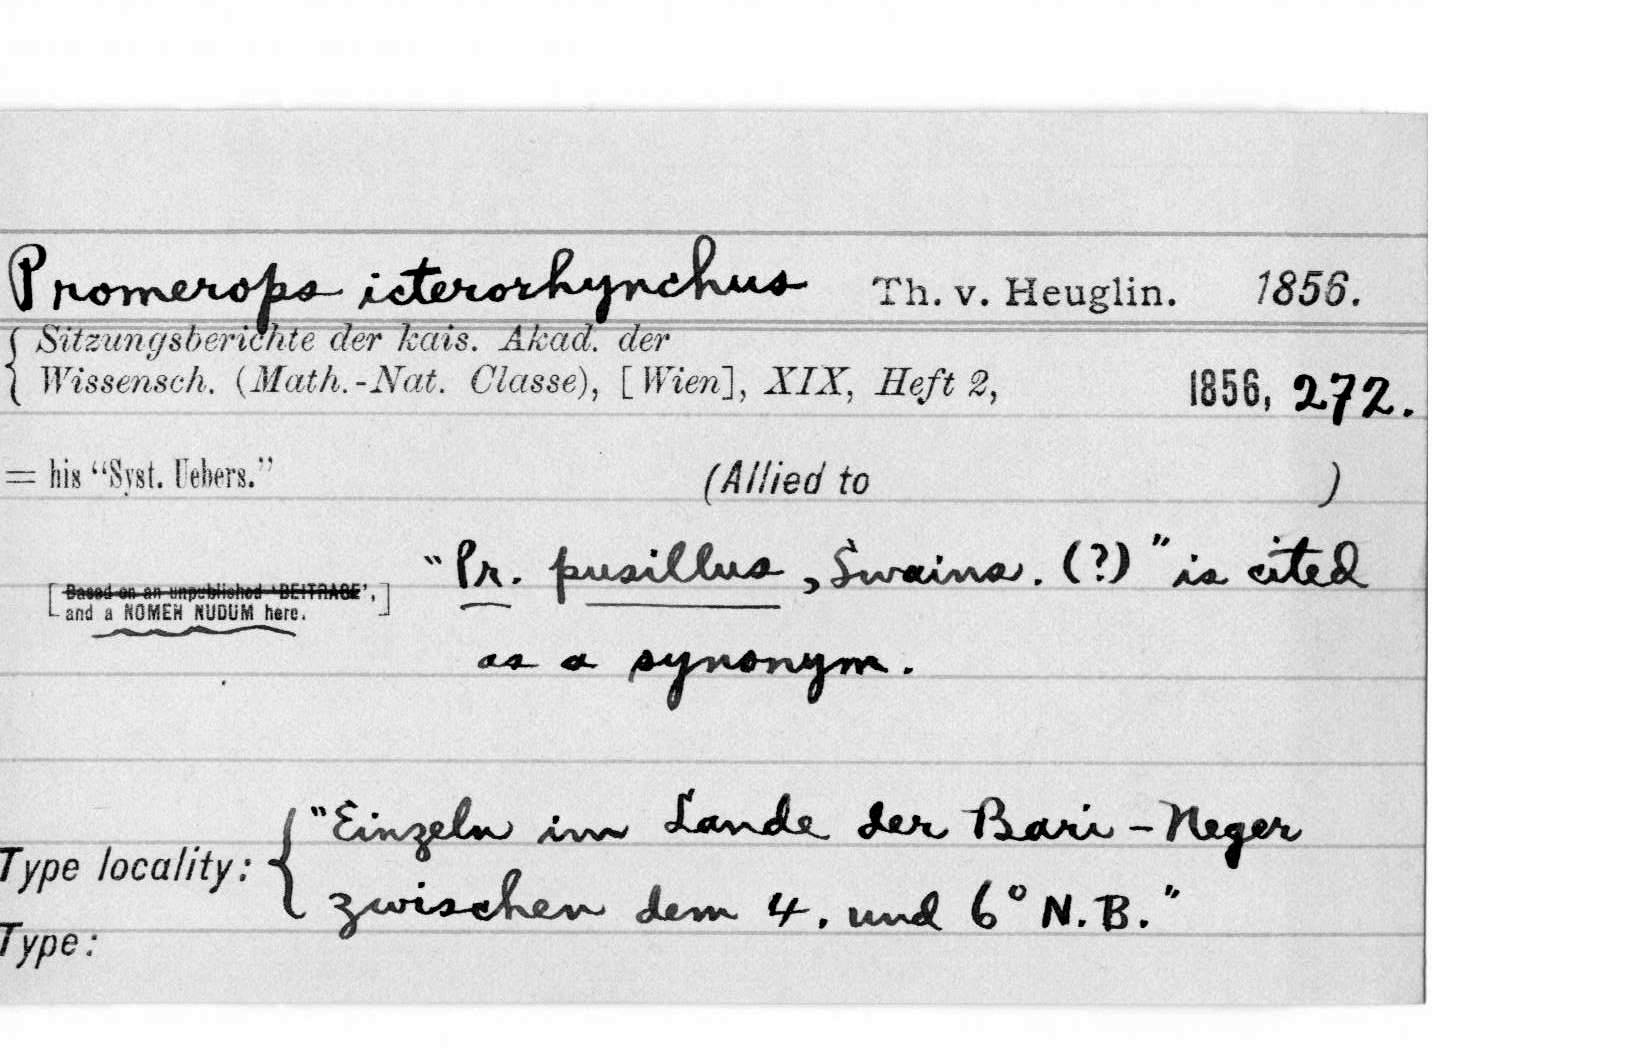 Promerops icterorhynchus Th. v. Heuglin. 1856.
Sitzungsberichte der kais. Akad. der
Wissensch. (Math.-Nat. Classe), [Wien], XIX, Heft 2, 1856, 272.
= his “Syst. Uebers.” (Allied to )
"Pr. pusillus, Swains. (?)" is cited
[Based on an unpublished ‘BEITRAGE’,
and a NOMEN NUDUM here.]
as a synonym.
Type locality: { "Einzeln im Lande der Bari-Neger
zwischen dem 4. und 6° N.B."
Type: